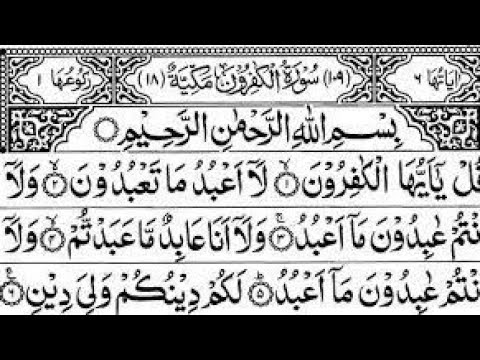 اٰيَاتُهَا ٦ (١٠٩) سُوْرَةُ الْكٰفِرُوْنَ مَكِّيَّةٌ (١٨) رُكُوْعُهَا ١
بِسْمِ اللّٰهِ الرَّحْمٰنِ الرَّحِيْمِ
قُلْ يٰۤاَيُّهَا الْكٰفِرُوْنَ ۙ‏١ لَاۤ اَعْبُدُ مَا تَعْبُدُوْنَ ۙ‏٢ وَلَاۤ
نْتُمْ عٰبِدُوْنَ مَاۤ اَعْبُدُ ۚ‏٣ وَلَاۤ اَنَا عَابِدٌ مَّا عَبَدْتُّمْ ۙ‏٤ وَلَاۤ
نْتُمْ عٰبِدُوْنَ مَاۤ اَعْبُدُ ؕ‏٥ لَكُمْ دِيْنُكُمْ وَلِيَ دِيْنِ ۠‏٦